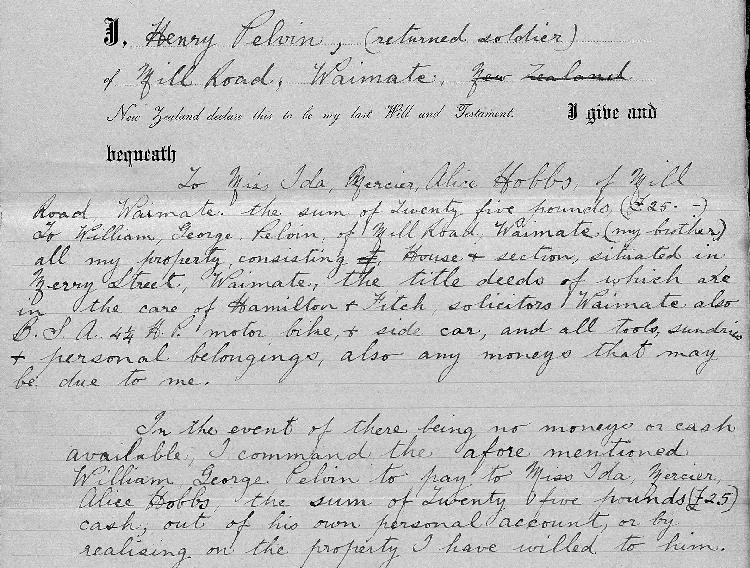 I, Henry Pelvin, (returned soldier)
of Mill Road, Waimate, New Zealand
New Zealand declare this to be my last Will and Testament. I give and
bequeath
To Miss Ida, Mercier, Alice Hobbs, of Mill
Road Waimate. the sum of Twenty five pounds (£25. -)
To William, George Pelvin, of Mill Road, Waimate (my brother)
all my property, consisting of House & section, situated in
Merry Street, Waimate, the title deeds of which are
in the care of Hamilton & Fitch, solicitors Waimate also
B.S.A. 4¼ H.P. motor bike, & side car, and all tools, sundries
& personal belongings, also any moneys that may
be due to me.
In the event of there being no moneys or cash
available, I command the afore mentioned
William George Pelvin to pay to Miss Ida, Mercier,
Alice Hobbs, the sum of Twenty five pounds (£25)
cash, out of his own personal account, or by
realising on the property I have willed to him.